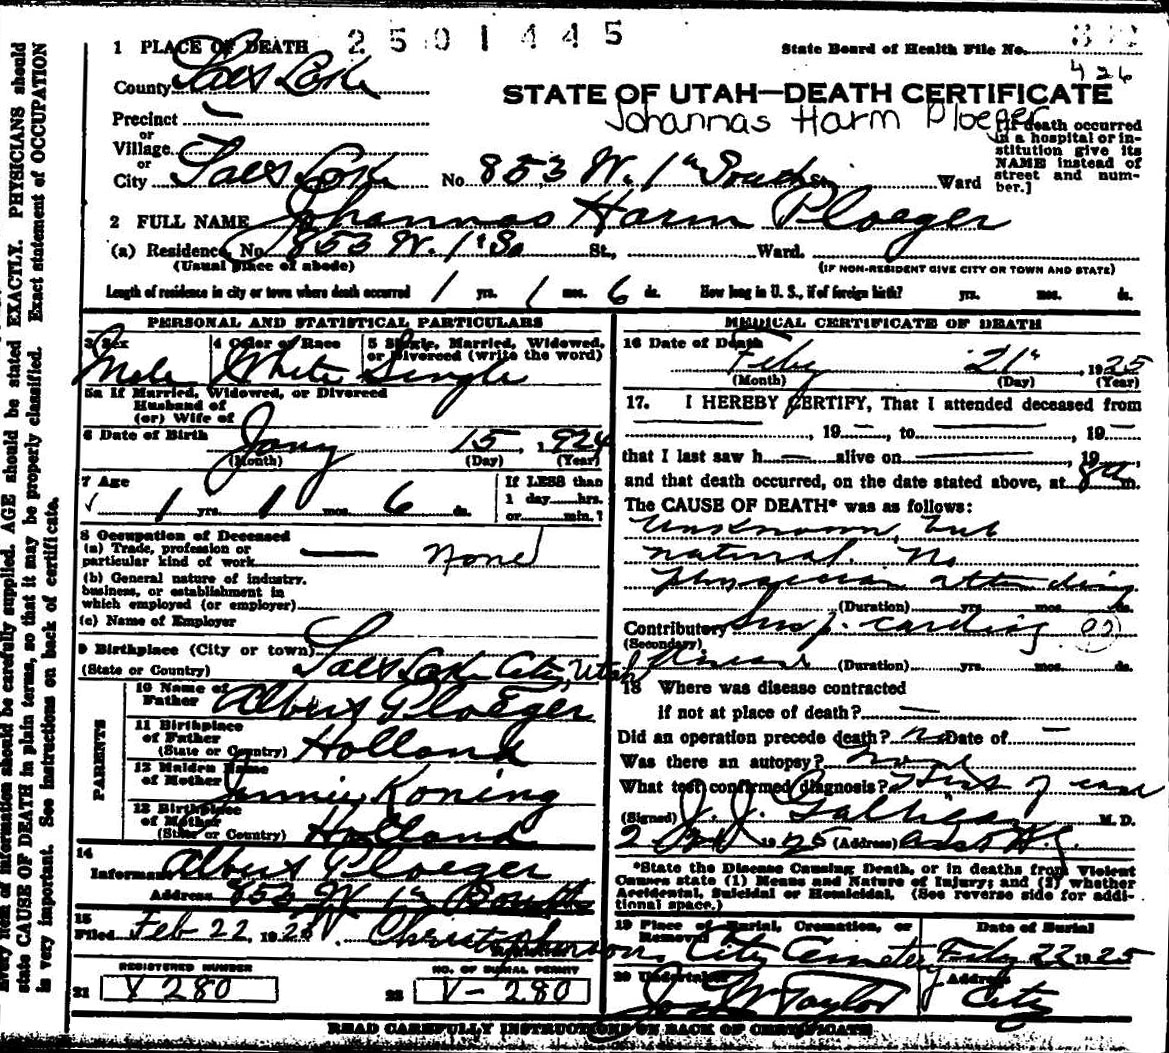 1 PLACE OF DEATH 2501445
State Board of Health File No.
426
County Salt Lake
STATE OF UTAH—DEATH CERTIFICATE
Johannas Harm Ploeger
Precinct —
or
Village
or
City Salt Lake No. 853 W. 1st South St. Ward
[If death occurred
in a hospital or in-
stitution give its
NAME instead of
street and num-
ber.]
2 FULL NAME Johannas Harm Ploeger
(a) Residence, No. 853 W. 1st So St., Ward.
(Usual place of abode) (IF NON-RESIDENT GIVE CITY OR TOWN AND STATE)
Length of residence in city or town where death occurred 1 yrs. 1 mos. 6 ds. How long in U. S., if of foreign birth? yrs. mos. ds.
PERSONAL AND STATISTICAL PARTICULARS
3 Sex 4 Color or Race 5 Single, Married, Widowed,
or Divorced (write the word)
Male White Single
5a If Married, Widowed, or Divorced
Husband of
(or) Wife of
6 Date of Birth Jany 15, 1924
(Month) (Day) (Year)
7 Age 1 yrs. 1 mos. 6 ds.
If LESS than
1 day hrs.
or min.?
8 Occupation of Deceased
(a) Trade, profession or
particular kind of work — None
(b) General nature of industry,
business, or establishment in
which employed (or employer)
(c) Name of Employer
9 Birthplace (City or town)
(State or Country) Salt Lake City, Utah
PARENTS
10 Name of
Father Albert Ploeger
11 Birthplace
of Father
(State or Country) Holland
12 Maiden Name
of Mother Jennie Koning
13 Birthplace
of Mother
(State or Country) Holland
14
Informant Albert Ploeger
Address 853 W 1st South
15
Filed Feb 22, 192 Christopherson
REGISTERED NUMBER NO. OF BURIAL PERMIT
21 V 280 22 V-280
MEDICAL CERTIFICATE OF DEATH
16 Date of Death
Feby 21st, 1925
(Month) (Day) (Year)
17. I HEREBY CERTIFY, That I attended deceased from
—, 19—, to —, 19—
that I last saw h— alive on —, 19—
and that death occurred, on the date stated above, at 8 m.
The CAUSE OF DEATH* was as follows:
Unknown, but
natural. No
physician attending
(Duration) yrs. mos. ds.
Contributory Susp. cardiac
(Secondary)
disease (Duration) yrs. mos. ds.
18 Where was disease contracted
if not at place of death? —
Did an operation precede death? no Date of —
Was there an autopsy? none
What test confirmed diagnosis? Hist of case
(Signed) J. J. Galligan M.D.
2 1925 (Address) asst
*State the Disease Causing Death, or in deaths from Violent
Causes state (1) Means and Nature of Injury; and (2) whether
Accidental, Suicidal or Homicidal. (See reverse side for addi-
tional space.)
19 Place of Burial, Cremation, or
Removal Date of Burial
City Cemetery Feby 22 1925
20 Undertaker Address
Jos Wm Taylor City
READ CAREFULLY INSTRUCTIONS ON BACK OF CERTIFICATE
Every item of information should be carefully supplied. AGE should be stated EXACTLY. PHYSICIANS should
state CAUSE OF DEATH in plain terms, so that it may be properly classified. Exact statement of OCCUPATION
is very important. See instructions on back of certificate.